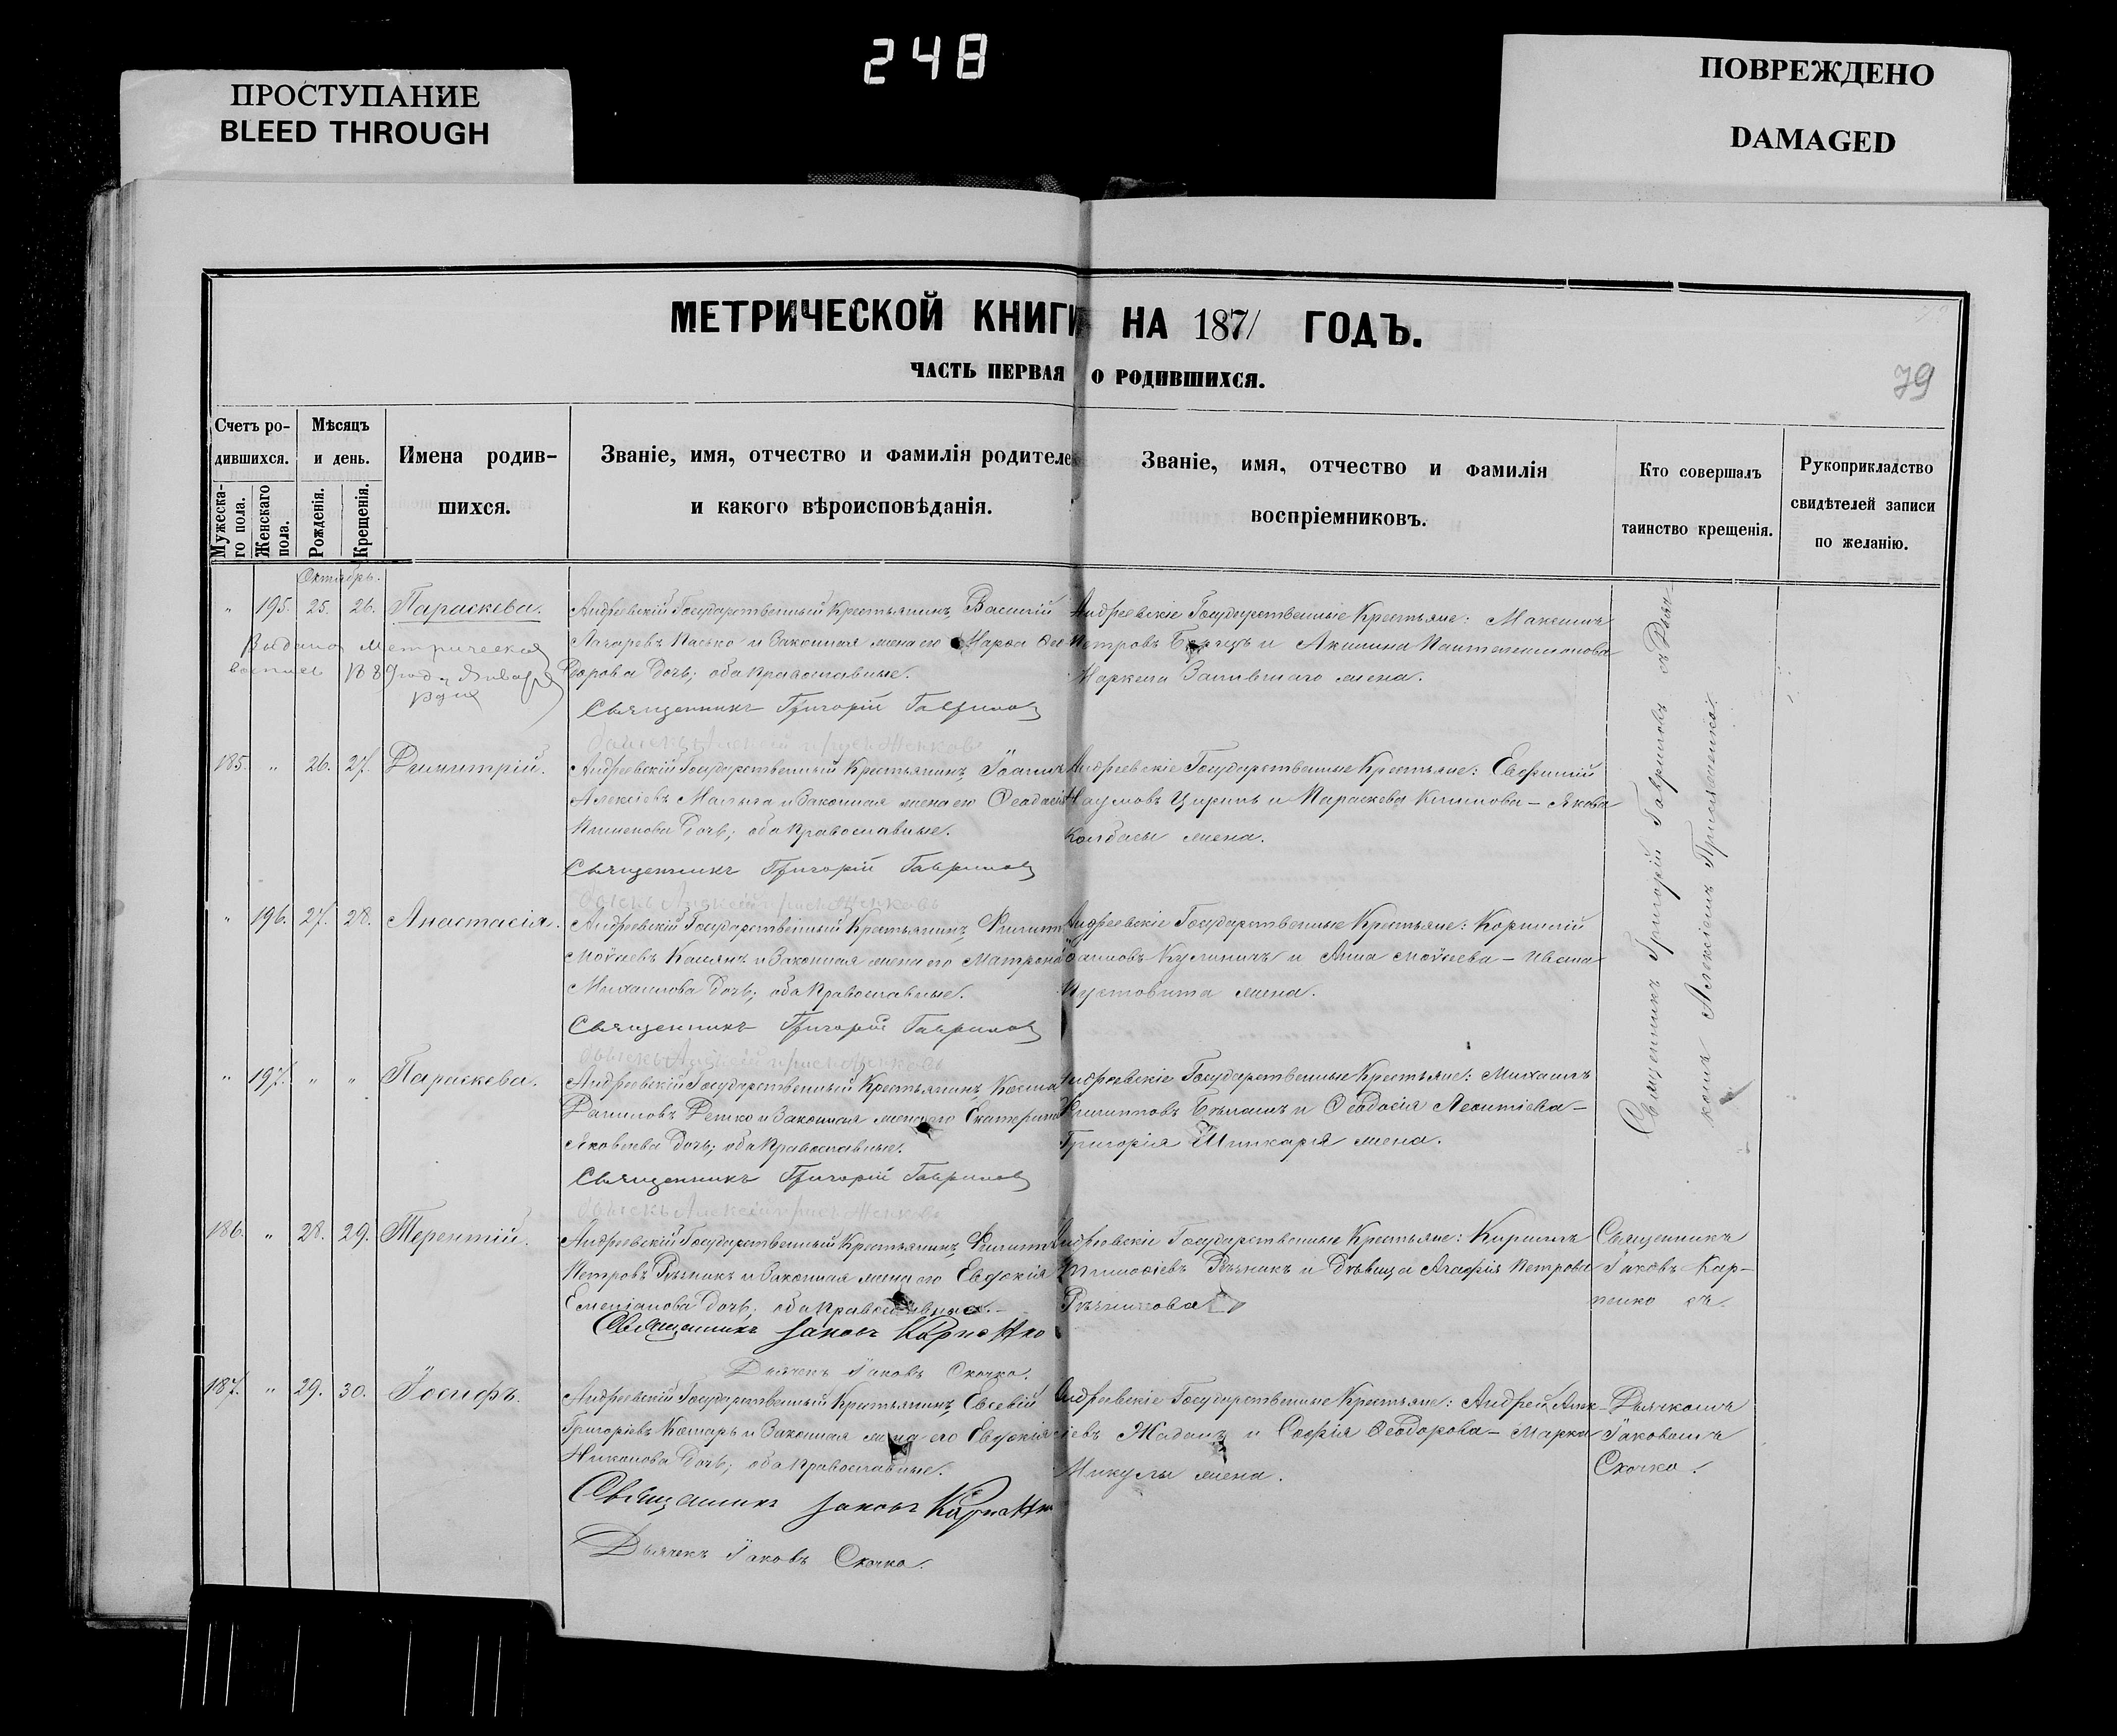 248
ПРОСТУПАНИЕ
BLEED THROUGH
ПОВРЕЖДЕНО
DAMAGED
МЕТРИЧЕСКОЙ КНИГИ НА 1871 ГОДЪ.
ЧАСТЬ ПЕРВАЯ О РОДИВШИХСЯ.
79
Счетъ ро-
дившихся.
Мужеска-
го пола.
Женскаго
пола.
Мѣсяцъ
и день.
Рожденія.
Крещенія.
Имена родив-
шихся.
Званіе, имя, отчество и фамилія родителе
и какого вѣроисповѣданія.
Званіе, имя, отчество и фамилія
воспріемниковъ.
Кто совершалъ
таинство крещенія.
Рукоприкладство
свидѣтелей записи
по желанію.
Октябрь.
" 195. 25. 26. Параскева.
Выдана метрическая
1889 года Января
Андреевскій Государственный Крестьянинъ, Василій
Лазаревъ Пасько и Законная жена его Марѳа Ѳео
дорова дочь; оба Православные.
Священникъ Григорій Гаврилов
Андреевскіе Государственные Крестьяне: Максимъ
Петровъ и Акилина Пантелеимонова
жена.
185. " 26. 27. Димитрій.
Андреевскій Государственный Крестьянинъ, Іоаннъ
Алексіевъ Малыга и Законная жена его Ѳеодосія
Пименова дочь; оба Православные.
Священникъ Григорій Гаврилов
Андреевскіе Государственные Крестьяне: Евфимій
Наумовъ и Параскева Климова – Якова
Колбасы жена.
" 196. 27. 28. Анастасія.
Андреевскій Государственный Крестьянинъ, Филипп
Мойсеевъ Касянъ и Законная жена его Матрона
Михаилова дочь; оба Православные.
Священникъ Григорій Гаврилов
Андреевскіе Государственные Крестьяне: Корнилій
Даниловъ Кулиничъ и Анна Мойсеева – Ивана
Пустовита жена.
" 197. " " Параскева.
Андреевскій Государственный Крестьянинъ, Косма
Даниловъ Детко и Законная жена его Екатерина
Яковлева дочь; оба Православные.
Священникъ Григорій Гаврилов
Андреевскіе Государственные Крестьяне: Михаилъ
Филипповъ и Ѳеодосія Леонтіева –
Григорія Шинкаря жена.
Священникъ Григорій Гавриловъ съ Дьяч-
комъ Алексіемъ
186. " 28. 29. Терентій.
Андреевскій Государственный Крестьянинъ, Филиппъ
Петровъ Рѣзникъ и Законная жена его Евфокія
Емеліанова дочь; оба Православные.
Священникъ Іаковъ Карпенко
Дьячекъ Іаковъ Скочко.
Андреевскіе Государственные Крестьяне: Кириллъ
Тимоѳіевъ Рѣзникъ и Дѣвица Агафія Петрова
Рѣзникова
Священникъ
Іаковъ Кар-
пенко съ
187. " 29. 30. Іосифъ.
Андреевскій Государственный Крестьянинъ, Евсевій
Григоріевъ Котарь и Законная жена его Евдокія
Никонова дочь; оба Православные.
Священникъ Іаковъ Карпенко
Дьячекъ Іаковъ Скочко.
Андреевскіе Государственные Крестьяне: Андрей Алек-
сіевъ Жаданъ и Софія Ѳеодорова – Марка
Микулы жена.
Дьячкомъ
Іаковомъ
Скочко.